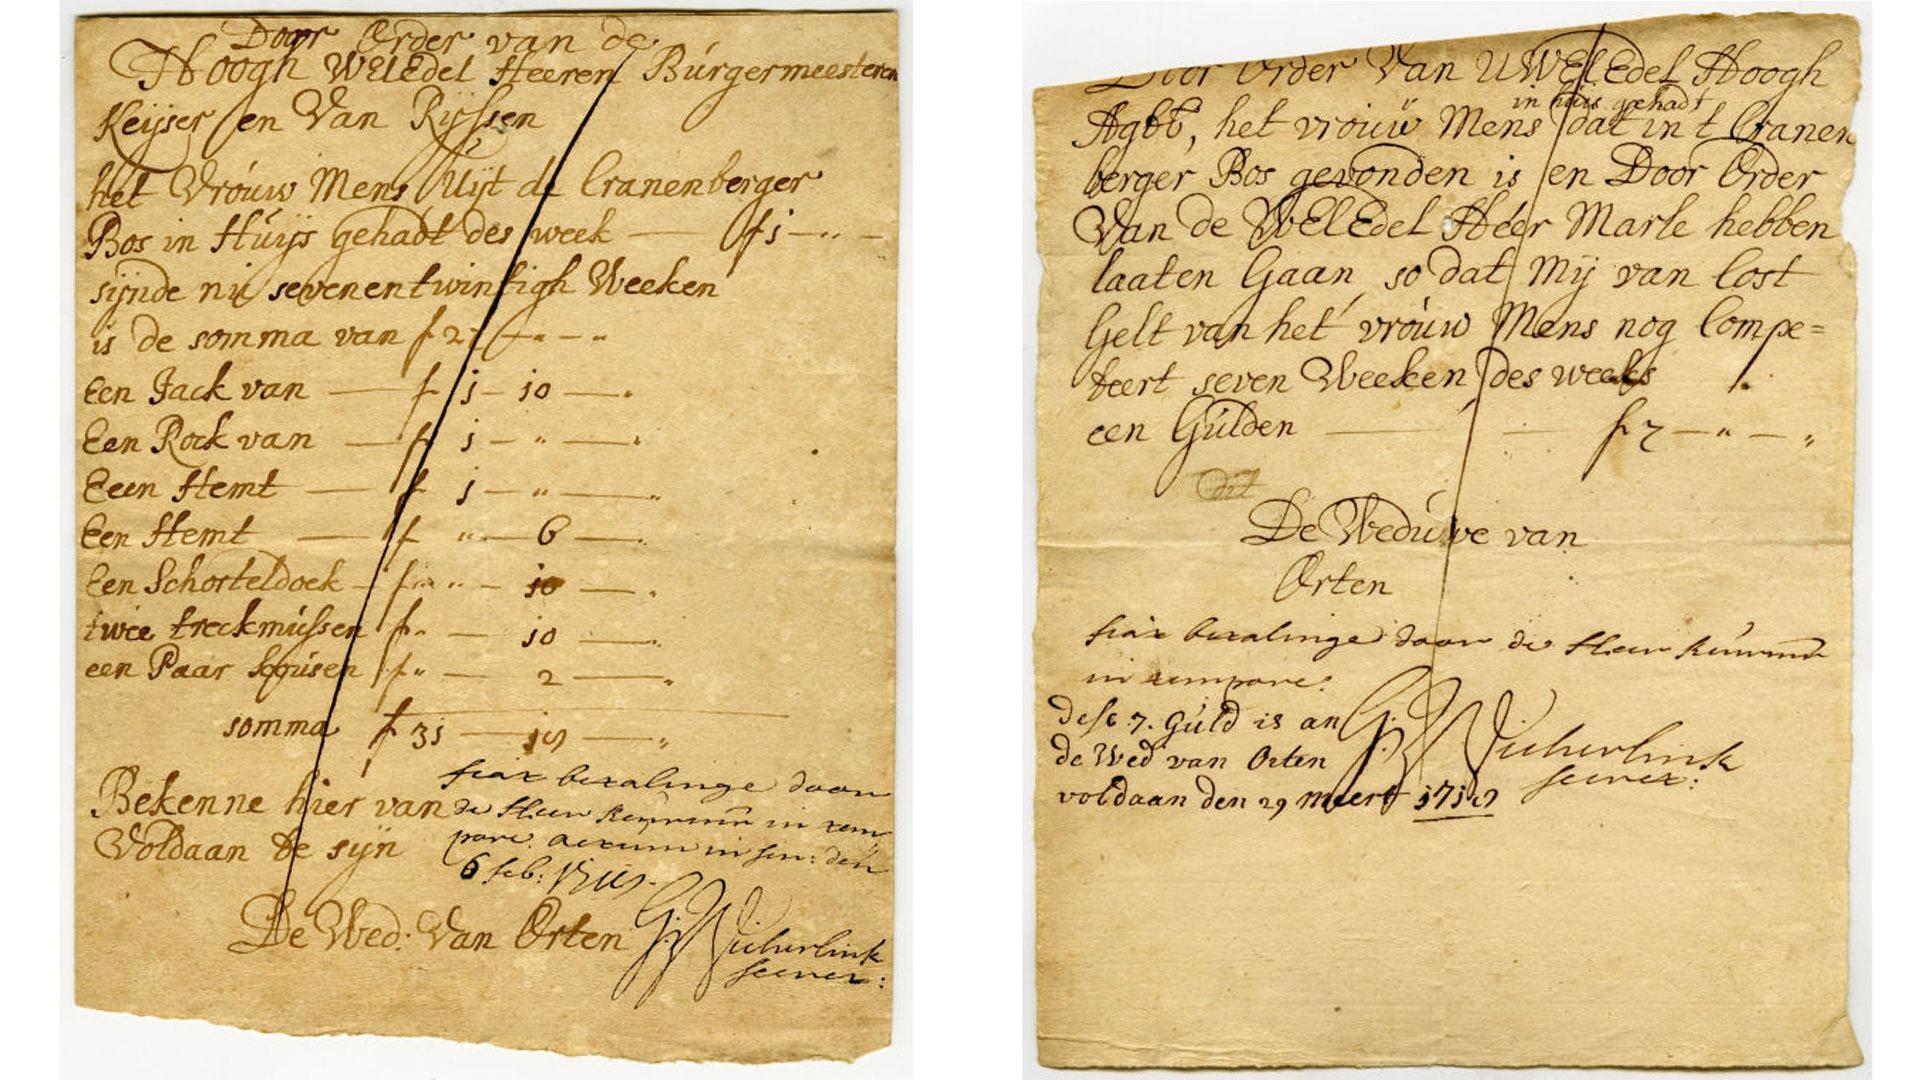 Door Order van de
Hoogh WelEdel Heeren Burgermeesteren
Keijser en Van Rijssen
het Vrouw Mens Uijt de Cranenberger
Bos in Huijs gehadt des week — f 1 — „ —
sijnde nu sevenentwintigh Weeken
is de somma van f 27 — „ — „
Een Jack van — f 1 — 10 — „
Een Rock van — f 1 — „ — „
Eeen Hemt — f 1 — „ — „
Een Hemt — f „ — 6 — „
Een Schorteldoek — f „ — 10 — „
twee treckmussen f „ — 10 — „
een Paar kousen f „ — 2 — „
somma f 31 — — „
Bekenne hier van
Voldaan te sijn
fiat betalinge door
de Heer in tem
pore. actum in sen: den
6 feb:
De Wed: Van Orten
G: Wicherlink
secret:
Door Order Van UWelEdel Hoogh
in huis gehadt
Agtb, het vrouw Mens dat in t Cranen
berger Bos gevonden is en Door Order
Van de WelEdel Heer Marle hebben
laaten Gaan so dat Mij van Cost
Gelt van het vrouw Mens nog Compe=
teert seven Weeken des weeks
een Gulden — f 7 — „ — „
dit
De Weduwe van
Orten
fiat betalinge door de Heer
in tempore.
dese 7. Guld is an
de Wed van Orten
voldaan den 29 meert
G: Wicherlink
secret: